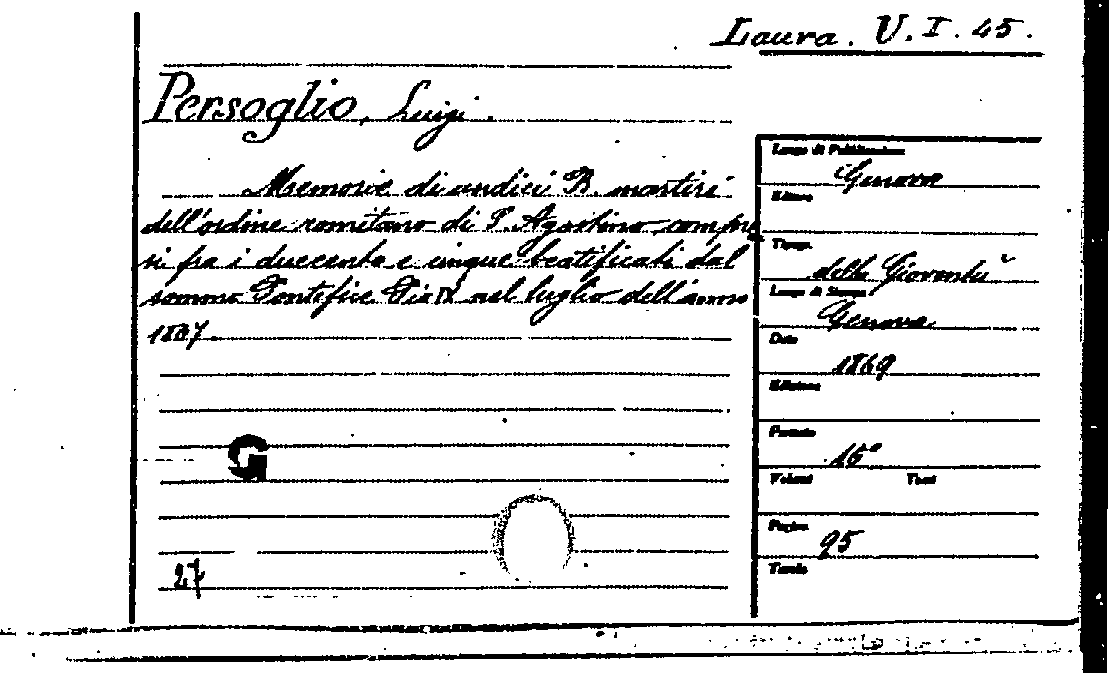 Laura. U. I. 45.
Persoglio, Luigi.
Memorie di undici B. martiri
dell'ordine romitano di S. Agostino compre
si fra i duecento e cinque beatificati dal
sommo Pontefice Pio IX nel luglio dell'anno
1867.
G
27
Luogo di Pubblicazione
Genova
Editore
Tipogr.
della Gioventù
Luogo di Stampa
Genova
Data
1869
Edizione
Formato
16°
Volumi Tomi
Pagine
95
Tavole